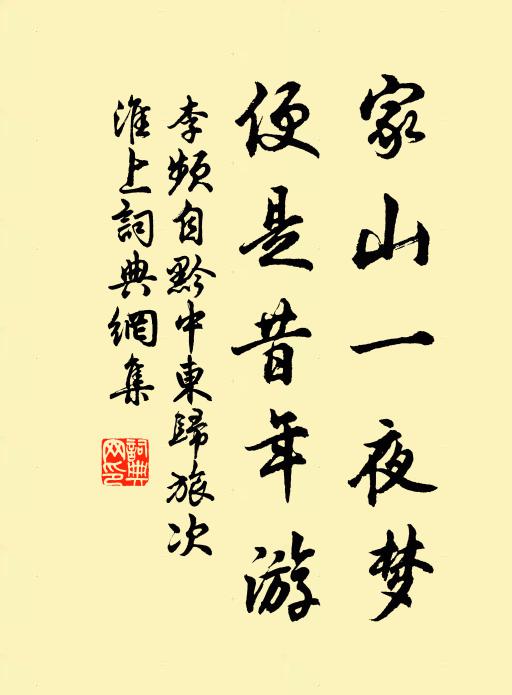 家山一夜梦
便是昔年游
李频自黔中東歸旅次
淮上詞典網集
詞典
网印